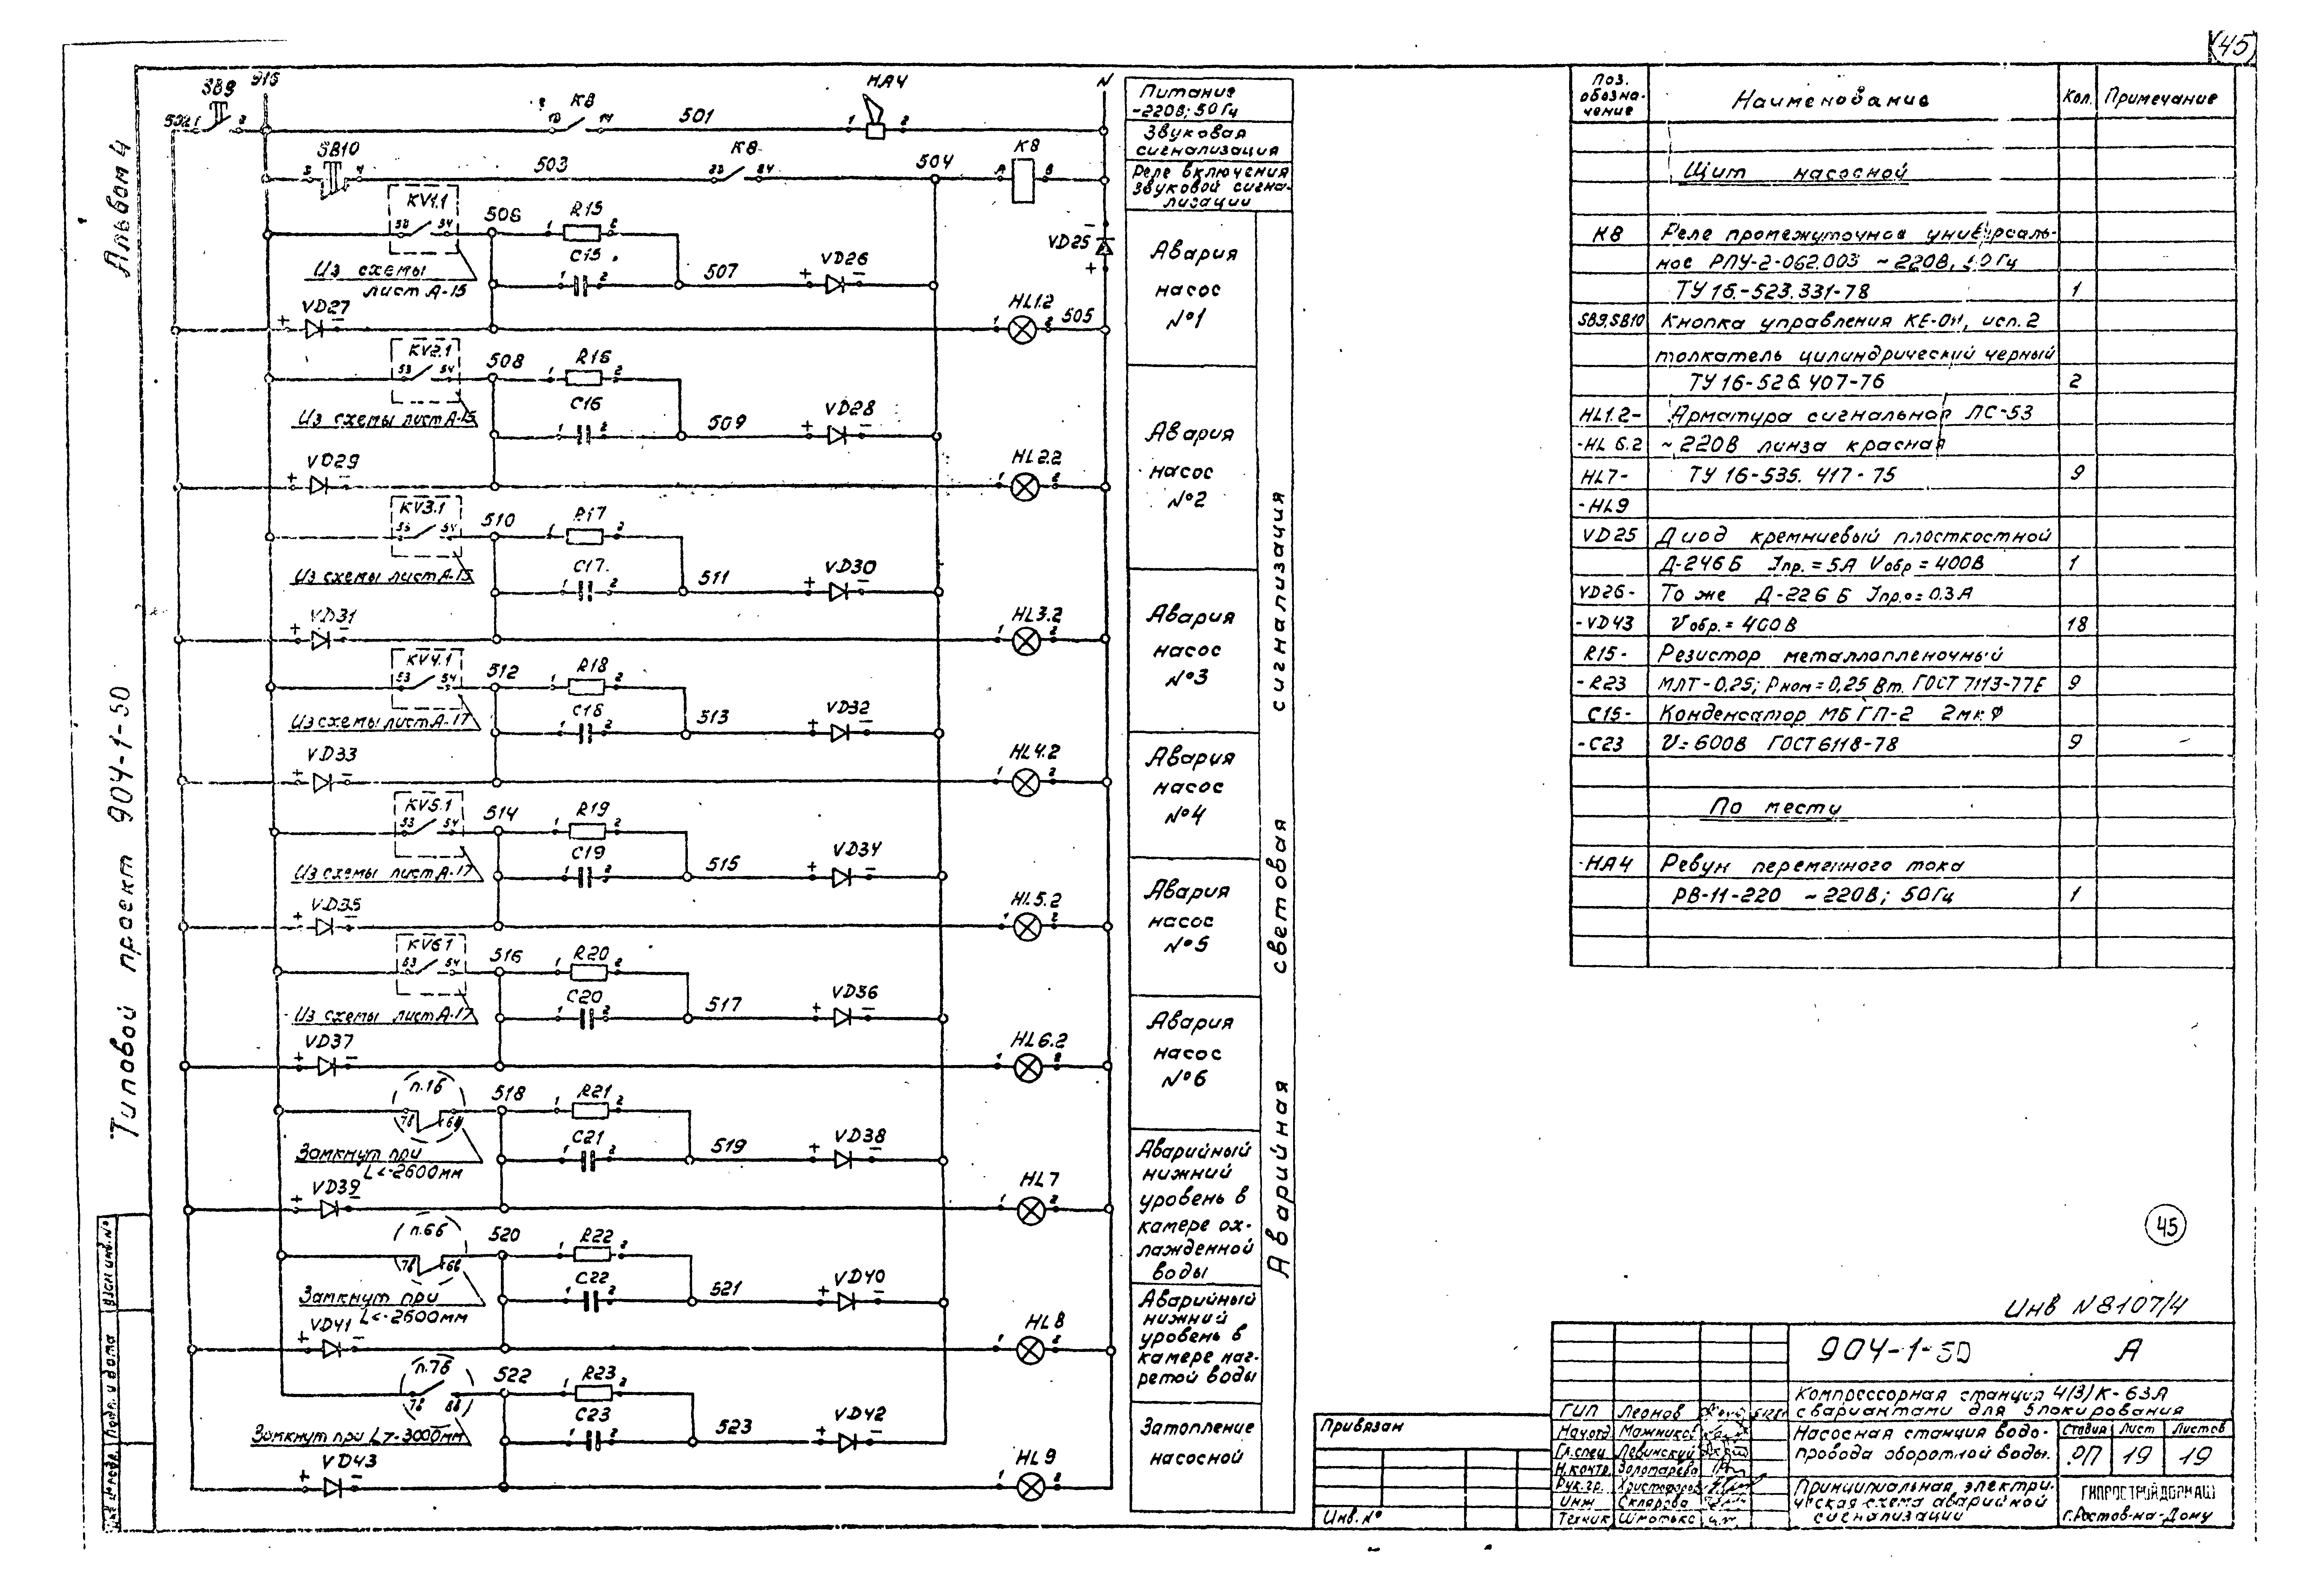 45
Альбом 4
Типовой проект 904-1-50
SB9
916
K8
HA4
N
502
1
2
13
14
501
1
2
SB10
503
K8
504
K8
3
4
23
24
A
B
KV1.1
53
54
506
R15
1
2
VD25
Из схемы
лист А-15
C15
507
VD26
VD27
HL1.2
505
KV2.1
53
54
508
R16
C16
509
VD28
Из схемы лист А-15
VD29
HL2.2
KV3.1
53
54
510
R17
C17
511
VD30
Из схемы лист А-15
VD31
HL3.2
KV4.1
53
54
512
R18
C18
513
VD32
Из схемы лист А-17
VD33
HL4.2
KV5.1
53
54
514
R19
C19
515
VD34
Из схемы лист А-17
VD35
HL5.2
KV6.1
53
54
516
R20
C20
517
VD36
Из схемы лист А-17
VD37
HL6.2
п.1б
7в
6в
518
R21
C21
519
VD38
Замкнут при
L<-2600мм
VD39
HL7
п.6б
7в
6в
520
R22
C22
521
VD40
Замкнут при
L<-2600мм
VD41
HL8
п.7б
7в
8в
522
R23
C23
523
VD42
Замкнут при L>-3000мм
VD43
HL9
Питание
~220В; 50Гц
Звуковая
сигнализация
Реле включения
звуковой сигна-
лизации
Авария
насос
№1
Авария
насос
№2
Авария
насос
№3
Авария
насос
№4
Авария
насос
№5
Авария
насос
№6
Аварийный
нижний
уровень в
камере ох-
лажденной
воды
Аварийный
нижний
уровень в
камере наг-
ретой воды
Затопление
насосной
Аварийная световая сигнализация
Поз. обозна-чение
Наименование
Кол.
Примечание
Щит насосной
K8 Реле промежуточное универсаль-
ное РПУ-2-062.003 ~220В, 50Гц
ТУ 16-523.331-78 1
SB9,SB10 Кнопка управления КЕ-011, исп. 2
толкатель цилиндрический черный
ТУ 16-526.407-76 2
HL1.2- Арматура сигнальная ЛС-53
-HL 6.2 ~220В линза красная
HL7- ТУ 16-535.417-75 9
-HL9
VD25 Диод кремниевый плосткостной
Д-246Б Iпр.=5А Vобр=400В 1
VD26- То же Д-226Б Iпр.о=0.3А
-VD43 Vобр.=400В 18
R15- Резистор металлопленочный
-R23 МЛТ-0,25; Рном=0,25 Вт. ГОСТ 7113-77Е 9
C15- Конденсатор МБГП-2 2мкФ
-C23 V=600В ГОСТ 6118-78 9
По месту
-HA4 Ревун переменного тока
РВ-11-220 ~220В; 50Гц 1
45
Инв N8107/4
904-1-50 А
Компрессорная станция 4(3)К-63А
с вариантами для блокирования
Насосная станция водо-
провода оборотной воды.
Стадия
Лист
Листов
РП
19
19
Принципиальная электри-
ческая схема аварийной
сигнализации
ГИПРОСТРОЙДОРМАШ
г.Ростов-на-Дону
ГИП Леонов
Нач.отд Мажников
Гл.спец Левинский
Н.контр. Золотарева
Рук.гр. Христофоров
Инж Склярова
Техник Шмотько
Привязан
Инв.№
Взам инв.№
Подп. и дата
Инв № подл.